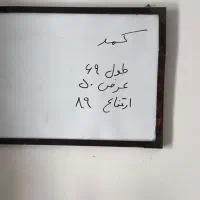 کمد
طول ۶۹
عرض ۵۰
ارتفاع ۸۹